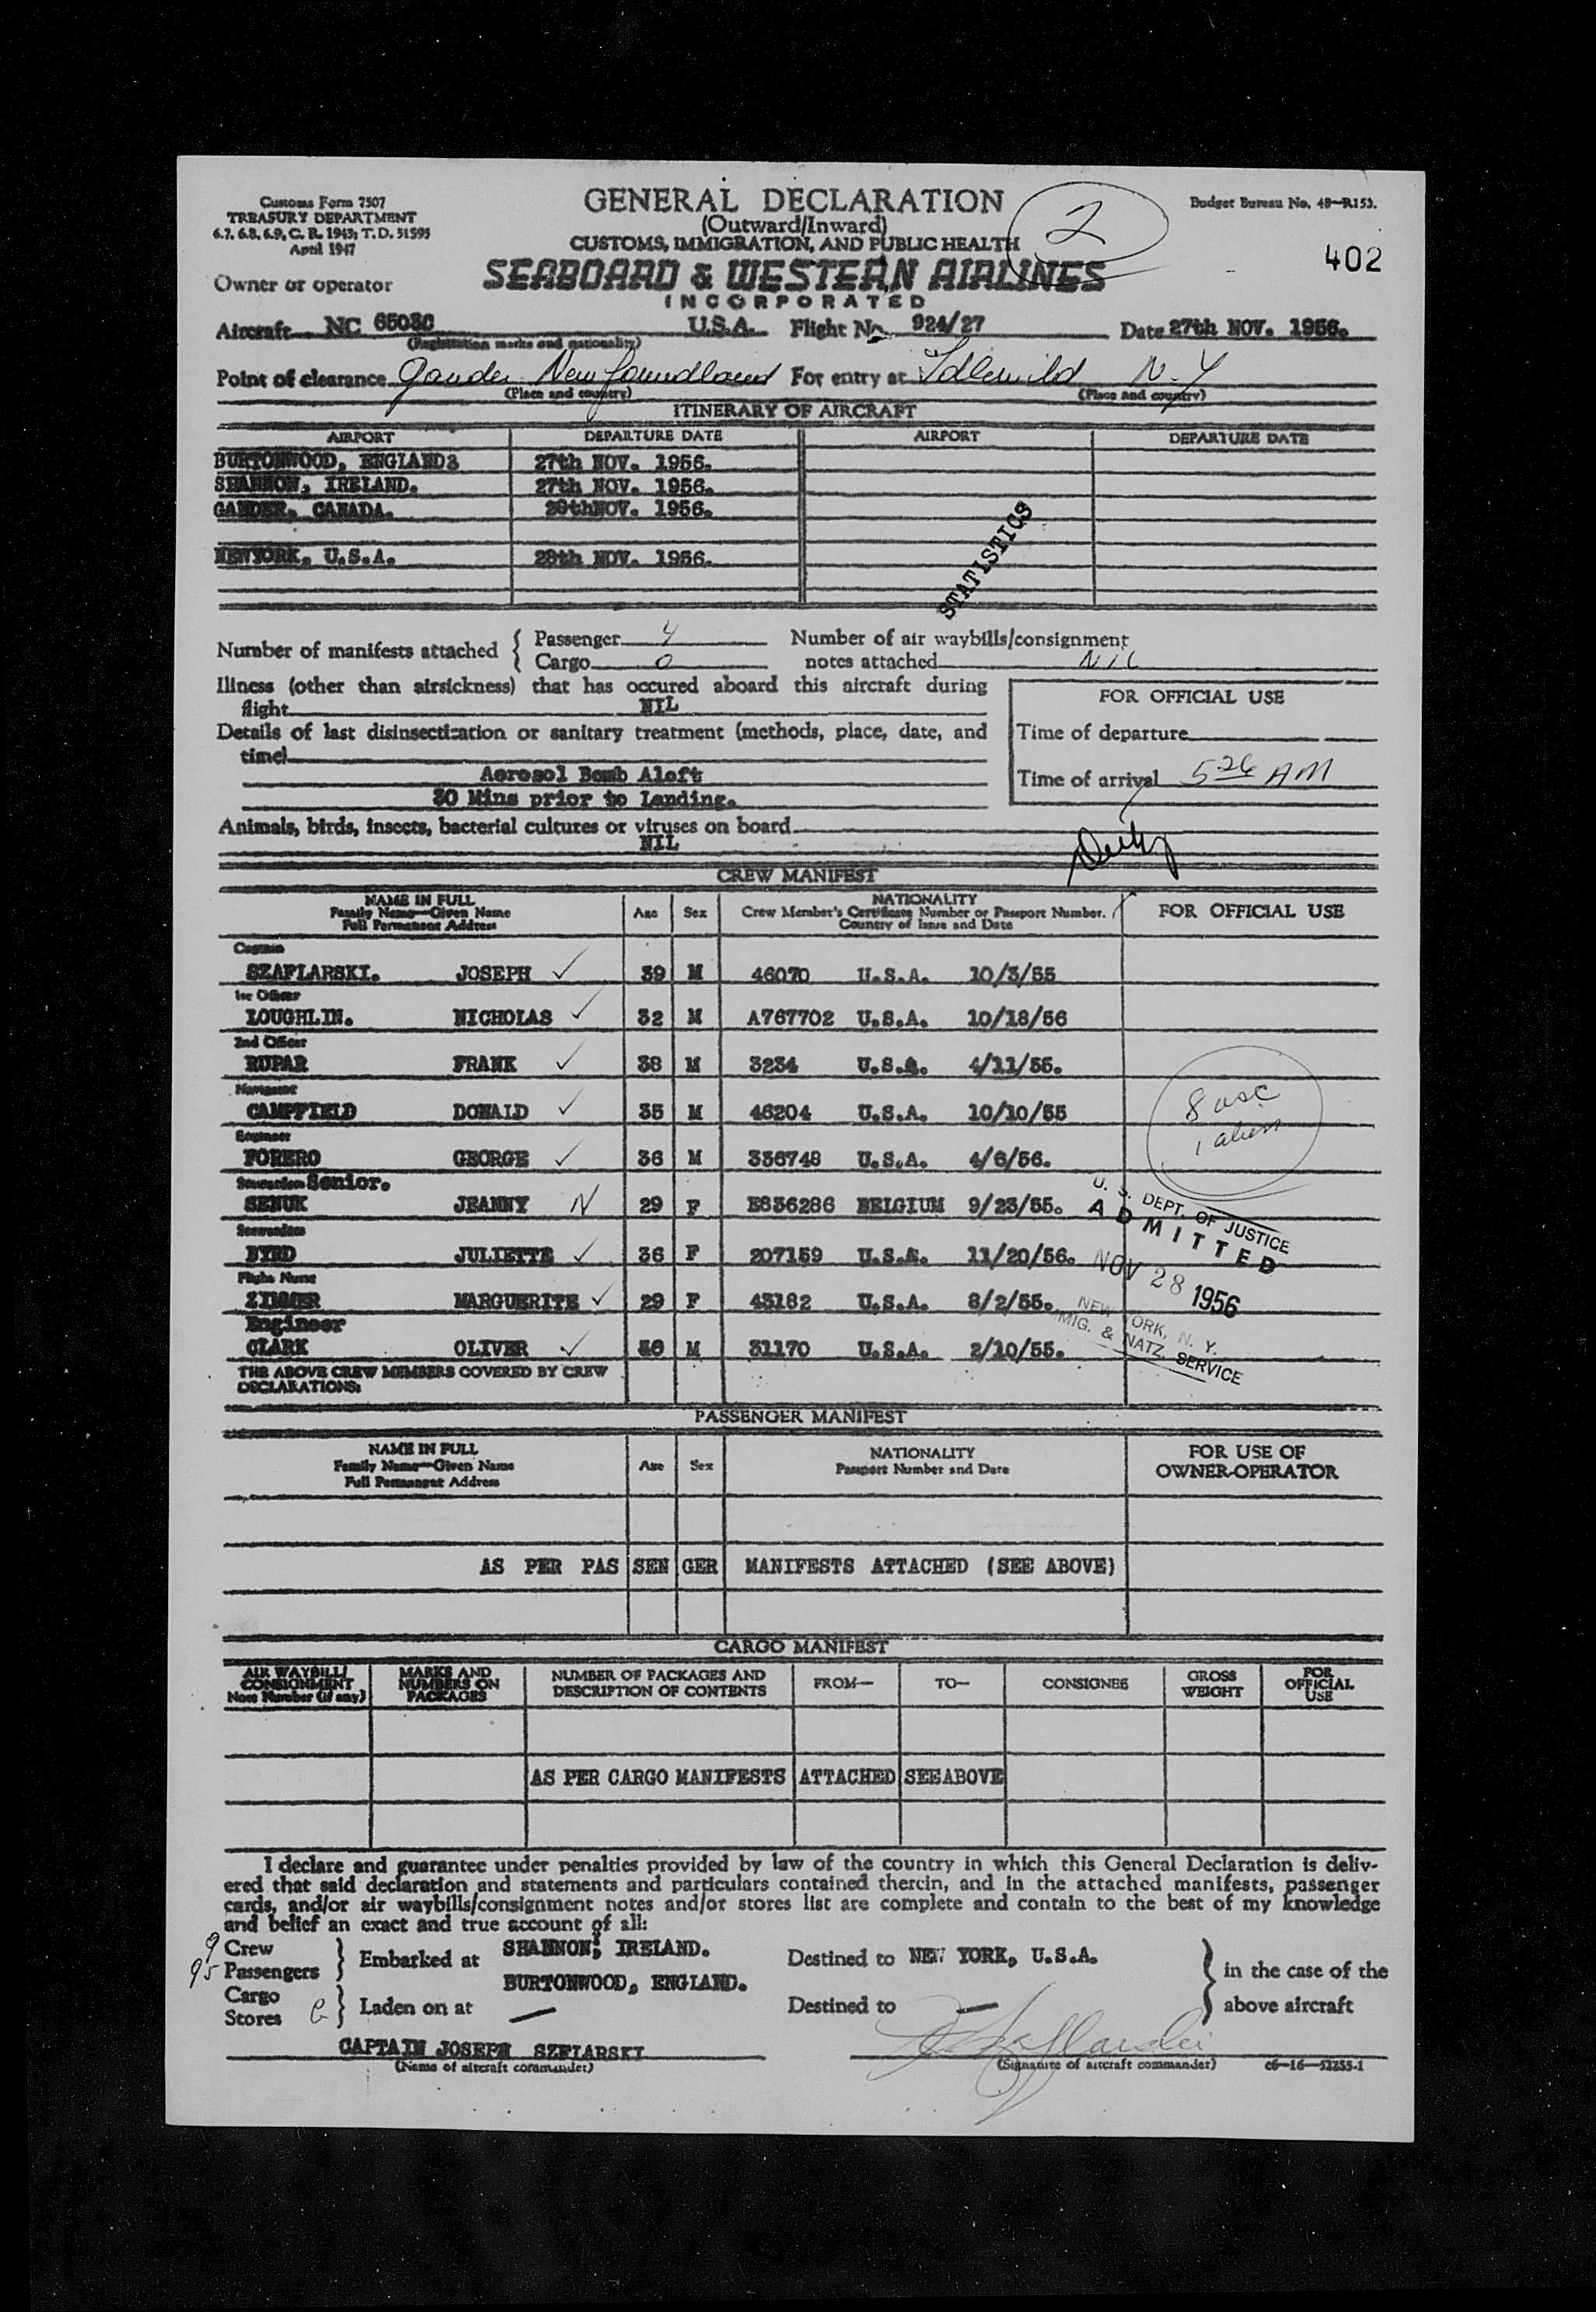 Customs Form 7507
TREASURY DEPARTMENT
6.7, 6.8, 6.9, C. R. 1943; T.D. 51595
April 1947
GENERAL DECLARATION
(Outward/Inward)
CUSTOMS, IMMIGRATION, AND PUBLIC HEALTH
2
Budget Bureau No. 48-R153.
402
Owner or operator
SEABOARD & WESTERN AIRLINES
INCORPORATED
Aircraft NC 6503C U.S.A. Flight No. 924/27 Date 27th NOV. 1956.
(Registration marks and nationality)
Point of clearance Gander Newfoundland For entry at Idlewild N.Y
(Place and country) (Place and country)
ITINERARY OF AIRCRAFT
AIRPORT DEPARTURE DATE AIRPORT DEPARTURE DATE
BURTONWOOD, ENGLAND& 27th NOV. 1956.
SHANNON, IRELAND. 27th NOV. 1956.
GANDER, CANADA. 28thNOV. 1956.
NEWYORK, U.S.A. 28th NOV. 1956.
STATISTICS
Number of manifests attached { Passenger 4 Number of air waybills/consignment
Cargo 0 notes attached NIL
Illness (other than airsickness) that has occured aboard this aircraft during
flight NIL
FOR OFFICIAL USE
Details of last disinsectization or sanitary treatment (methods, place, date, and
time)
Time of departure
Aerosol Bomb Aloft
Time of arrival 5 26 AM
30 Mins prior to Landing.
Animals, birds, insects, bacterial cultures or viruses on board
NIL
CREW MANIFEST
NAME IN FULL
Family Name—Given Name
Full Permanent Address
Age Sex
NATIONALITY
Crew Member's Certificate Number or Passport Number.
Country of Issue and Date
FOR OFFICIAL USE
Captain
SZAFLARSKI. JOSEPH ✓ 39 M 46070 U.S.A. 10/3/55
1st Officer
LOUGHLIN. NICHOLAS ✓ 32 M A767702 U.S.A. 10/18/56
2nd Officer
RUPAR FRANK ✓ 38 M 3234 U.S.A. 4/11/55.
Navigator
CAMPFIELD DONALD ✓ 35 M 46204 U.S.A. 10/10/55
8 usc
1 alien
Engineer
FORERO GEORGE ✓ 36 M 336748 U.S.A. 4/6/56.
Stewardess Senior.
SENUK JEANNY N 29 F E836286 BELGIUM 9/23/55.
Stewardess
BYRD JULIETTE ✓ 36 F 207159 U.S.A. 11/20/56.
Flight Nurse
ZIMMER MARGUERITE ✓ 29 F 43182 U.S.A. 8/2/55.
Engineer
CLARK OLIVER ✓ M 31170 U.S.A. 2/10/55.
U. S. DEPT. OF JUSTICE
ADMITTED
NOV 28 1956
NEW YORK, N. Y.
IMIG. & NATZ. SERVICE
THE ABOVE CREW MEMBERS COVERED BY CREW
DECLARATIONS:
PASSENGER MANIFEST
NAME IN FULL
Family Name—Given Name
Full Permanent Address
Age Sex
NATIONALITY
Passport Number and Date
FOR USE OF
OWNER-OPERATOR
AS PER PAS SEN GER MANIFESTS ATTACHED (SEE ABOVE)
CARGO MANIFEST
AIR WAYBILL/
CONSIGNMENT
Note Number (if any)
MARKS AND
NUMBERS ON
PACKAGES
NUMBER OF PACKAGES AND
DESCRIPTION OF CONTENTS
FROM— TO— CONSIGNEE
GROSS
WEIGHT
FOR
OFFICIAL
USE
AS PER CARGO MANIFESTS ATTACHED SEE ABOVE
I declare and guarantee under penalties provided by law of the country in which this General Declaration is deliv-
ered that said declaration and statements and particulars contained therein, and in the attached manifests, passenger
cards, and/or air waybills/consignment notes and/or stores list are complete and contain to the best of my knowledge
and belief an exact and true account of all:
9 Crew
95 Passengers } Embarked at SHANNON; IRELAND. Destined to NEW YORK, U.S.A. } in the case of the
BURTONWOOD, ENGLAND.
Cargo
Stores } Laden on at — Destined to — above aircraft
CAPTAIN JOSEPH SZFLARSKI
(Name of aircraft commander) (Signature of aircraft commander) c6—16—52255-1